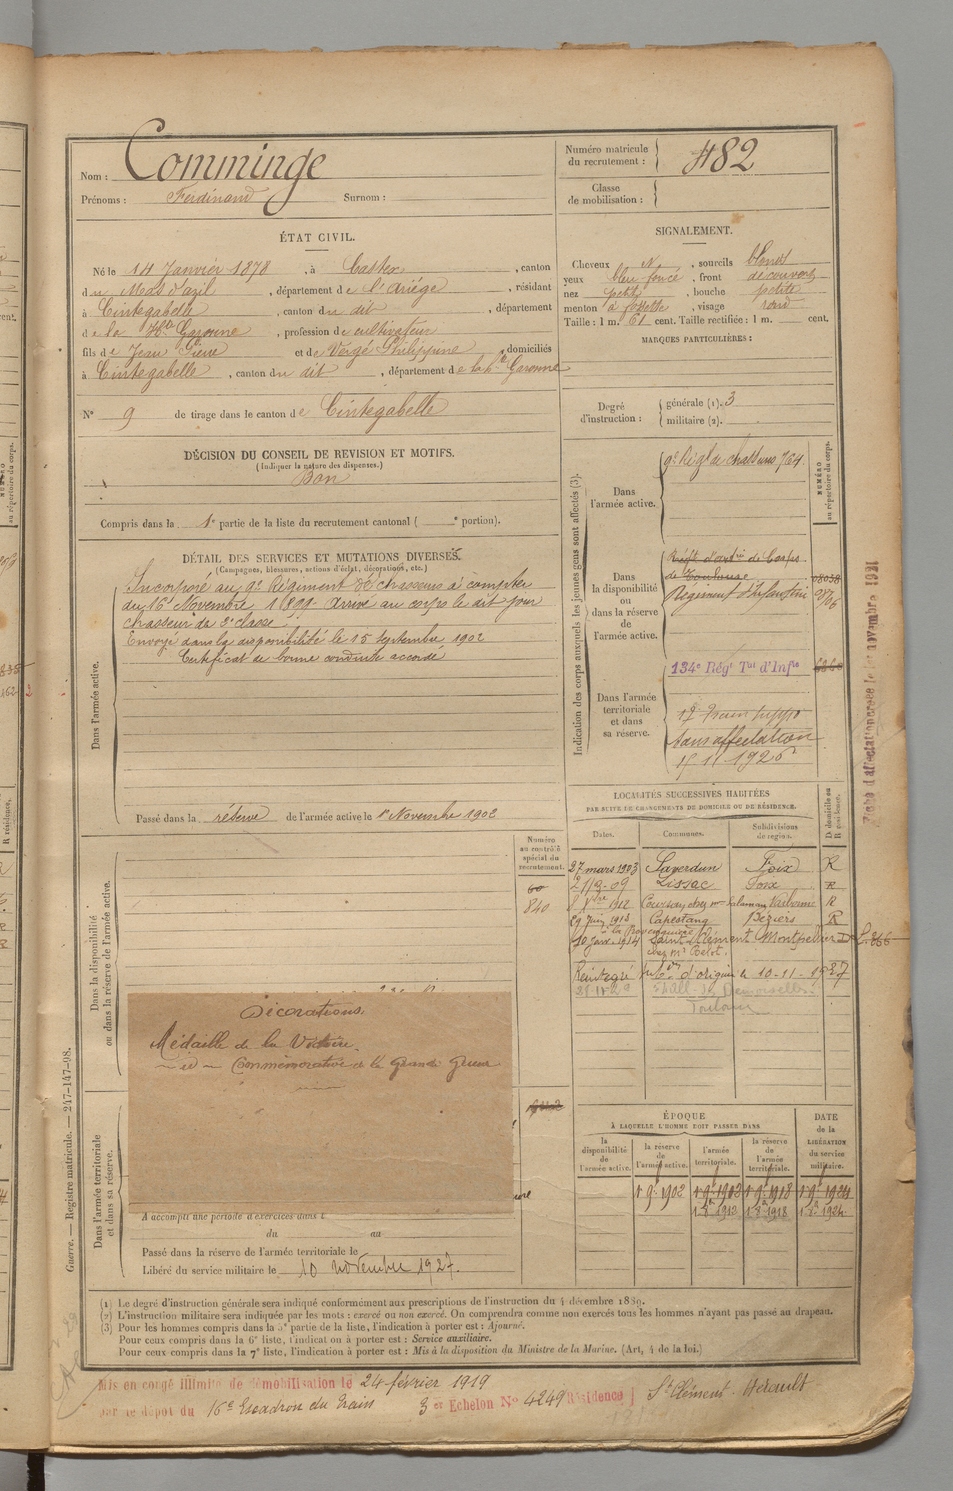 Nom : Comminge
Prénoms : Ferdinand Surnom :
Numéro matricule du recrutement : 482
Classe de mobilisation :
ÉTAT CIVIL.
Né le 14 Janvier 1878, à Castex, canton
du Mas d'azil, département de l'Ariège, résidant
à Cintegabelle, canton du dit, département
de la Hte Garonne, profession de cultivateur
fils de Jean Pierre et de Vergé Philippine, domiciliés
à Cintegabelle, canton du dit, département de la hte Garonne
N° 9 de tirage dans le canton de Cintegabelle
SIGNALEMENT.
Cheveux N, sourcils blonds
yeux bleu foncé, front découvert
nez petit, bouche petite
menton à fossette, visage rond
Taille : 1 m. 61 cent. Taille rectifiée : 1 m. cent.
MARQUES PARTICULIÈRES :
Degré d'instruction : générale (1). 3
militaire (2).
DÉCISION DU CONSEIL DE REVISION ET MOTIFS.
(Indiquer la nature des dispenses.)
Bon
Compris dans la 1e partie de la liste du recrutement cantonal ( e portion).
DÉTAIL DES SERVICES ET MUTATIONS DIVERSES.
(Campagnes, blessures, actions d'éclat, décorations, etc.)
Dans l'armée active.
Incorporé au 9e Régiment de chasseurs à compter
du 16 Novembre 1899 Arrivé au corps le dit jour
chasseur de 2e classe
Envoyé dans la disponibilité le 15 septembre 1902
Certificat de bonne conduite accordé
Passé dans la réserve de l'armée active le 1er Novembre 1902
Indication des corps auxquels les jeunes gens sont affectés (3).
NUMÉRO au répertoire du corps.
Dans l'armée active.
9e Régt de chasseurs 764
Dans la disponibilité ou dans la réserve de l'armée active.
de Corps
de Toulouse
Régiment d'Infanterie
Dans l'armée territoriale et dans sa réserve.
134e Régt Tal d'Infie
sans affectation
LOCALITÉS SUCCESSIVES HABITÉES
PAR SUITE DE CHANGEMENTS DE DOMICILE OU DE RÉSIDENCE.
Dates. Communes. Subdivisions de région. D. domicile ou R résidence.
27 mars 1903 Saverdun Foix R
Lissac Foix R
Coursan Narbonne R
29 Juin 1913 Capestang Béziers R
10 janv. 1914 Saint Clément Montpellier D
Réintégré d'origine le 10-11-1927
Toulouse
Numéro au contrôle spécial du recrutement.
60
840
Dans la disponibilité ou dans la réserve de l'armée active.
Décorations.
Médaille de la Victoire.
— id — Commémorative de la Grande Guerre
Dans l'armée territoriale et dans sa réserve.
A accompli une période d'exercices dans l
du au
Passé dans la réserve de l'armée territoriale le
Libéré du service militaire le 10 novembre 1927.
ÉPOQUE
À LAQUELLE L'HOMME DOIT PASSER DANS
DATE de la LIBÉRATION du service militaire.
la disponibilité de l'armée active.
la réserve de l'armée active.
l'armée territoriale.
la réserve de l'armée territoriale.
(1) Le degré d'instruction générale sera indiqué conformément aux prescriptions de l'instruction du 4 décembre 1889.
(2) L'instruction militaire sera indiquée par les mots : exercé ou non exercé. On comprendra comme non exercés tous les hommes n'ayant pas passé au drapeau.
(3) Pour les hommes compris dans la 5e partie de la liste, l'indication à porter est : Ajourné.
Pour ceux compris dans la 6e liste, l'indication à porter est : Service auxiliaire.
Pour ceux compris dans la 7e liste, l'indication à porter est : Mis à la disposition du Ministre de la Marine. (Art. 4 de la loi.)
Guerre. — Registre matricule. — 247-147-98.
Mis en congé illimité de démobilisation le 24 février 1919
par le dépôt du 16e Escadron du Train 3e Echelon N° 4249 Résidence St Clément Hérault